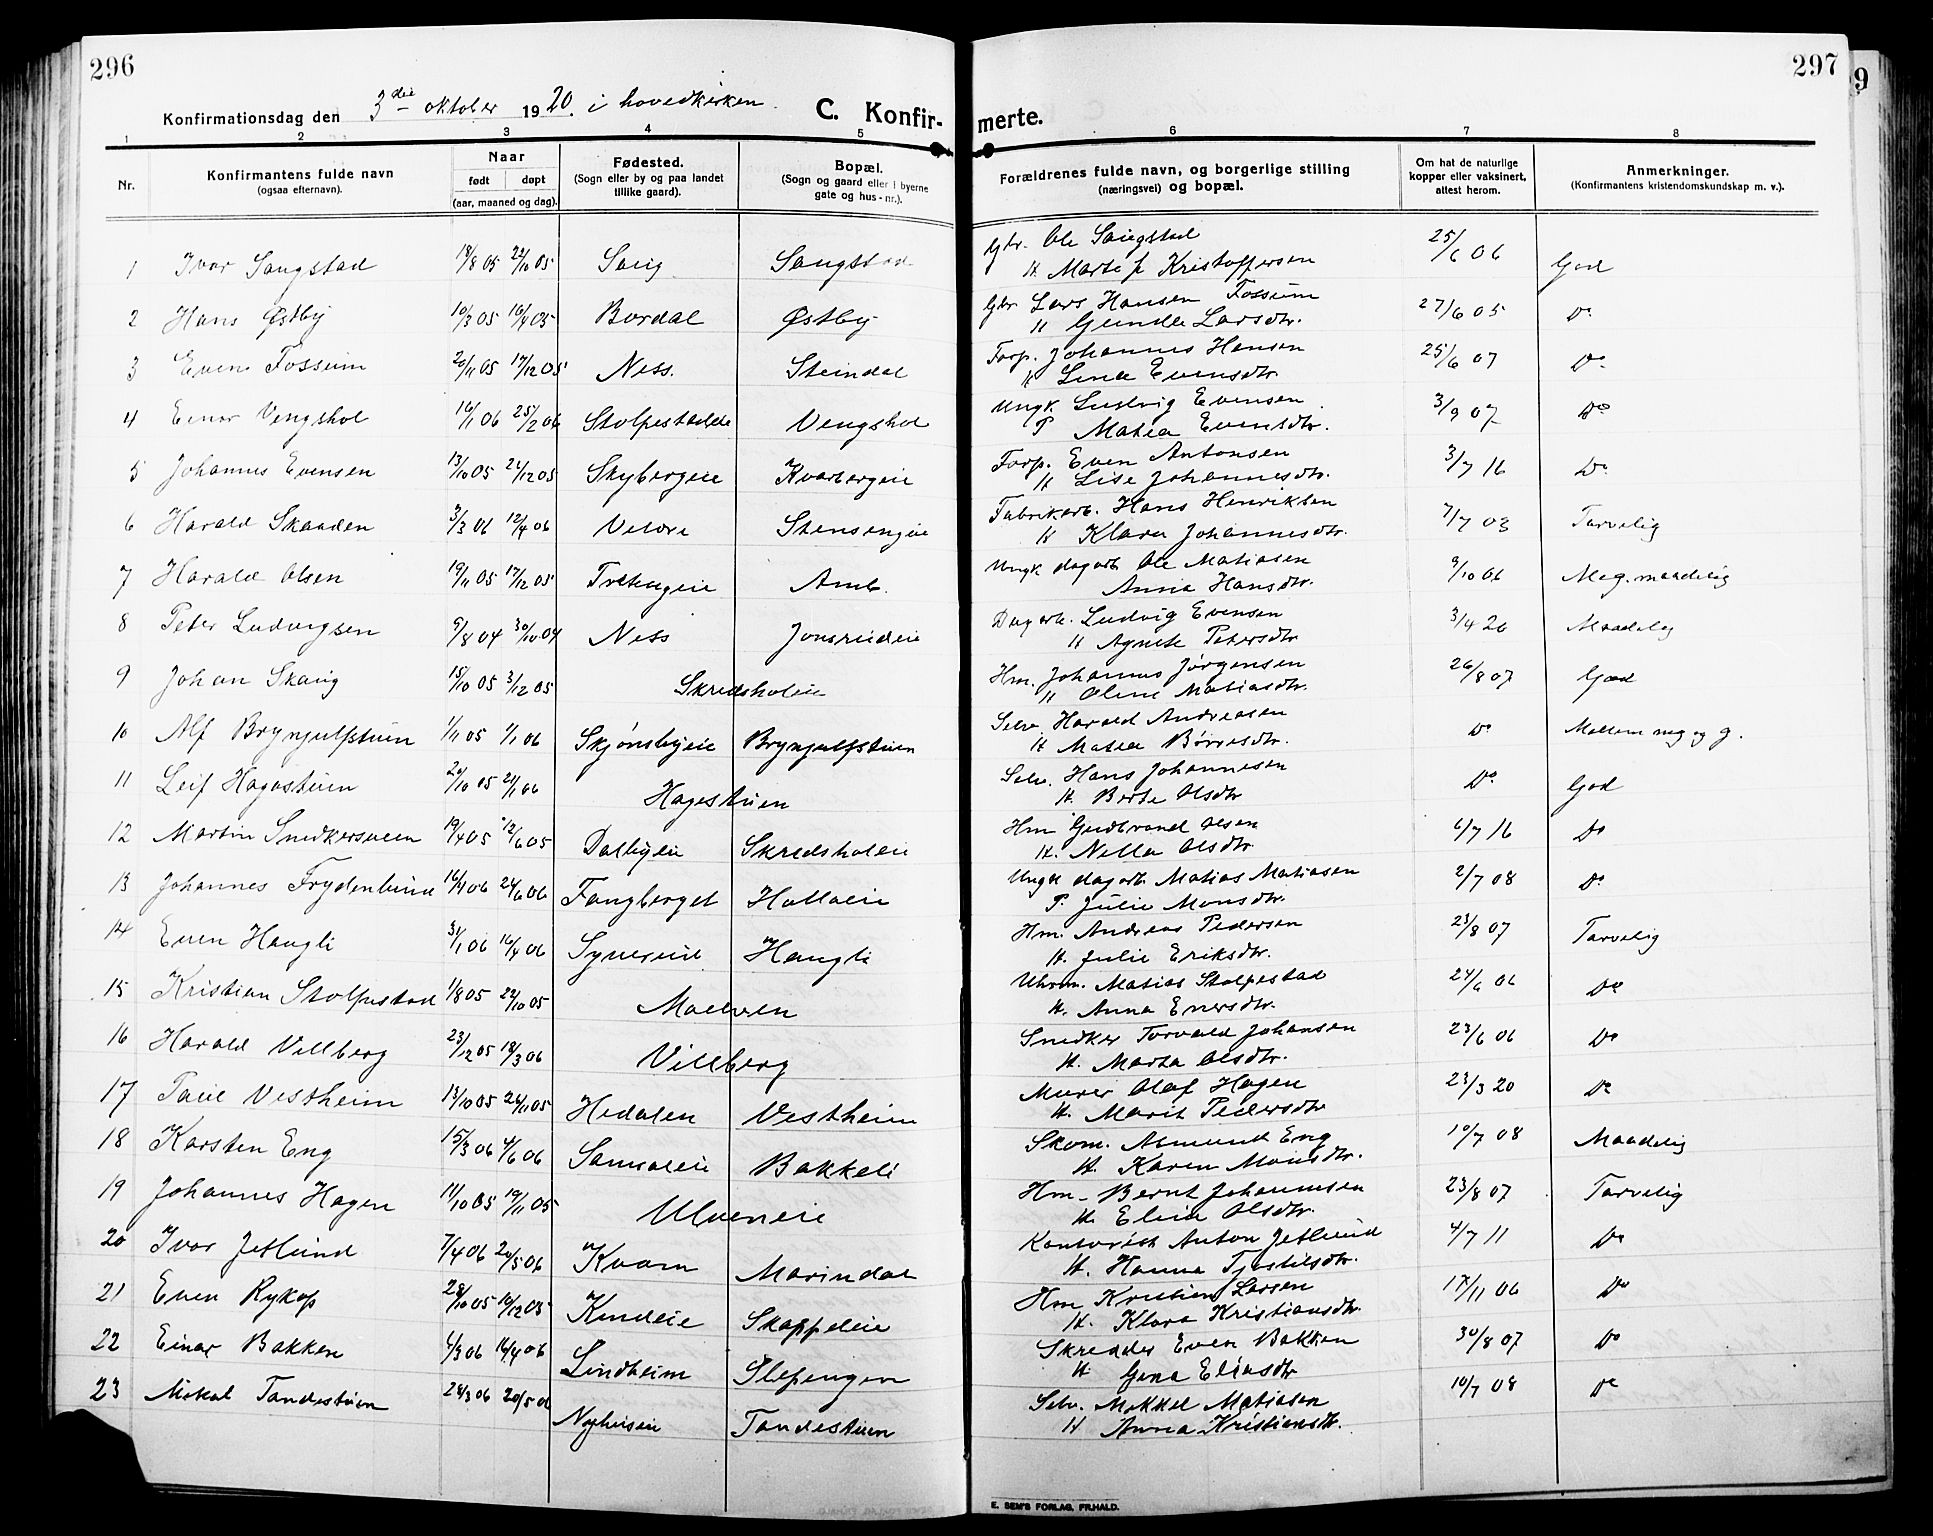 296
Konfirmationsdag den 3die oktober 1920. i hovedkirken.
C. Konfir-
1 2 3 4 5
Nr. Konfirmantens fulde navn (ogsaa efternavn). Naar født døpt (aar, maaned og dag). Fødested. (Sogn eller by og paa landet tillike gaard). Bopæl. (Sogn og gaard eller i byerne gate og hus-nr.).
1 Ivar Saugstad 18/8 05 22/10 05 Saug Saugstad
2 Hans Østby 10/3 05 16/4 05 Bordal Østby
3 Even Fossum 20/11 05 17/12 05 Ness. Steindal
4 Einar Vengshol 16/1 06 25/2 06 Stolpestadeie Vengshol
5 Johannes Evensen 13/10 05 26/12 05 Skybergeie Kvarbergeie
6 Harald Skaaden 3/3 06 12/4 06 Veldre Stensengeie
7 Harald Olsen 19/11 05 17/12 05 Tretengeie Amb.
8 Peter Ludvigsen 9/8 04 30/10 04 Ness Jonsrudeie
9 Johan Skaug 15/10 05 3/12 05 Skredsholeie
10 Alf Bryngulfstuen 1/11 05 1/1 06 Skjønsbyeie Bryngulfstuen
11 Leif Hagestuen 20/10 05 21/1 06 Hagestuen
12 Martin Snedkersveen 19/4 05 12/6 05 Dalbyeie Skredsholeie
13 Johannes Frydenlund 16/4 06 24/6 06 Fangberget Holloeie
14 Even Haugli 31/1 06 16/4 06 Synnerud Haugli
15 Kristian Stolpestad 1/8 05 22/10 05 Moelven
16 Harald Villberg 23/12 05 18/3 06 Villberg
17 Paul Vestheim 13/10 05 26/11 05 Hedalen Vestheim
18 Karsten Eng 15/3 06 4/6 06 Bakkeli
19 Johannes Hagen 11/10 05 19/11 05 Ulveneie
20 Ivar Jetlund 7/4 06 20/5 06 Kvam Marindal
21 Even Rykop 28/10 05 10/12 05 Kindeie Skappeleie
22 Einar Bakken 4/3 06 16/4 06 Lindheim Slepengen
23 Mikal Tandestuen 28/3 06 20/5 06 Nyhuseie Tandestuen
297
merte.
6 7 8
Forældrenes fulde navn, og borgerlige stilling (næringsvei) og bopæl. Om hat de naturlige kopper eller vaksinert, attest herom. Anmerkninger. (Konfirmantens kristendomskundskap m. v.).
Gbr. Ole Saugstad 25/6 06 God
H. Marte f. Kristoffersen
Gbr Lars Hansen Fossum 27/6 05 Do
H Gunda Larsdtr.
Torp. Johannes Hansen 25/6 07 Do
H Lina Evensdtr
Ungk. Ludvig Evensen 3/9 07 Do
P Matea Evensdtr.
Torp. Even Antonsen 3/7 16 Do
H Lise Johannesdtr.
Fabrikarb. Hans Henriksen 7/7 03 Tarvelig
H Klara Johannesdtr.
Ungk dagarb Ole Matiasen 9/10 06 Meg. maadelig
Anna Hansdtr.
Dagarb. Ludvig Evensen 3/4 20 Maadelig
H Agnete Petersdtr
Hm. Johannes Jørgensen 26/8 07 God
H Oline Matiasdtr.
Selv Harald Andreasen Do Mellem mg og g.
H Matea Børresdtr.
Selv. Hans Johannesen Do God
H. Berte Olsdtr
Hm Gudbrand Olsen 6/7 16 Do
H. Nella Olsdtr.
Ungk dagarb Matias Matiasen 2/7 08 Do
P. Julie Monsdtr.
Hm. Andreas Pedersen 23/8 07 Tarvelig
H. Julie Eriksdtr.
Uhrm. Matias Stolpestad 24/6 06 Do
H. Anna Enersdtr.
Snedker Torvald Johansen 23/6 06 Do
H. Marta Olsdtr.
Murer Olaf Hagen 23/3 20 Do
H. Marit Pedersdtr
Skom. Asmund Eng 10/7 08 Maadelig
H. Karen Monsdtr.
Hm. Bernt Johannesen 23/8 07 Tarvelig
H. Elina Olsdtr.
Kontorist Anton Jetlund 4/7 11 Do
H. Hanna Tjostilsdtr.
Hm Kristian Larsen 17/11 06 Do
H. Klara Kristiansdtr
Skredder Even Bakken 30/8 07 Do
H Gina Eliasdtr
Selv. Mikkel Matiasen 10/7 08 Do
H Anna Kristiansdtr.
E. SEM'S FORLAG, FR.HALD.